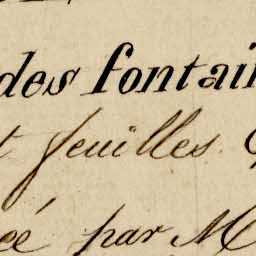 des fontai
t feuilles.
cé par M